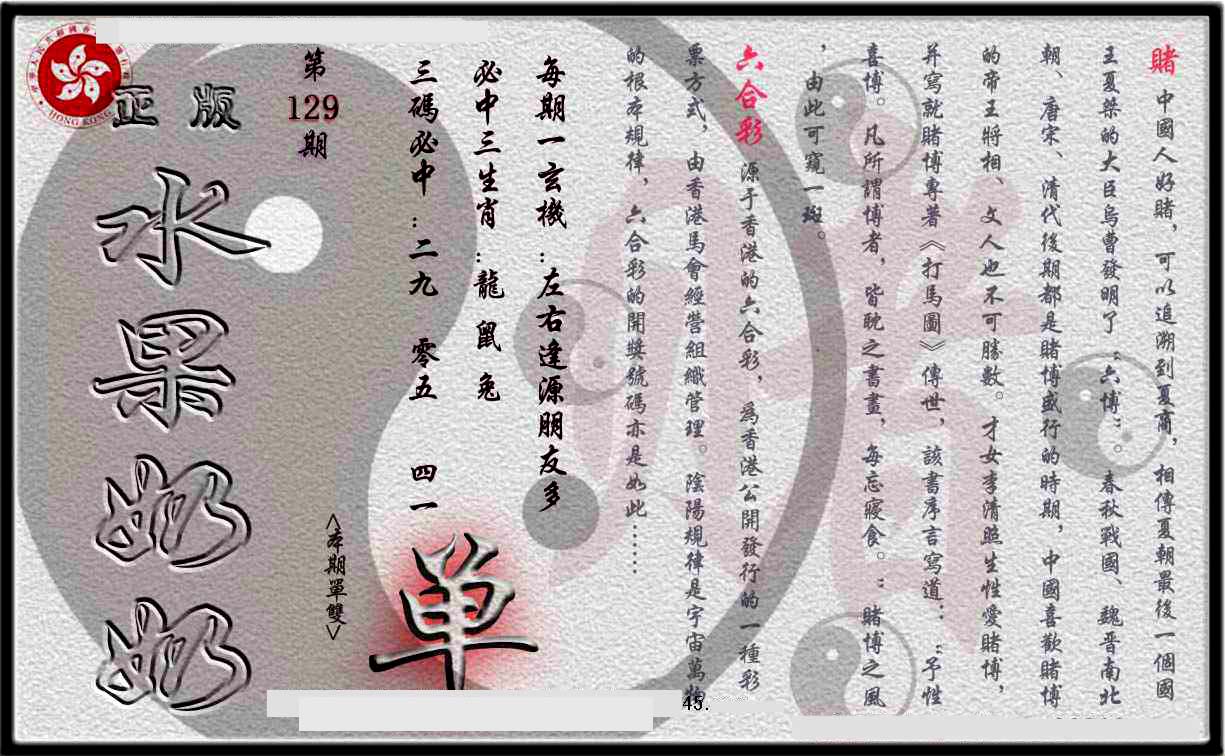 賭 中國人好賭，可以追溯到夏商，相傳夏朝最後一個國
王夏桀的大臣烏曹發明了“六博”。春秋戰國、魏晋南北
朝、唐宋、清代後期都是賭博盛行的時期，中國喜歡賭博
的帝王將相、文人也不可勝數。才女李清照生性愛賭博，
并寫就賭博專著《打馬圖》傳世，該書序言寫道：“予性
喜博。凡所謂博者，皆耽之書畫，每忘寢食。”賭博之風
，由此可窺一斑。
六合彩 源于香港的六合彩，爲香港公開發行的一種彩
票方式，由香港馬會經營組織管理。陰陽規律是宇宙萬物
的根本規律，六合彩的開獎號碼亦是如此……
每期一玄機：左右逢源朋友多
必中三生肖：龍 鼠 兔
三碼必中：二九 零五 四一
單
<本期單雙>
第
129
期
正版
水果奶奶
HONG KONG
45.